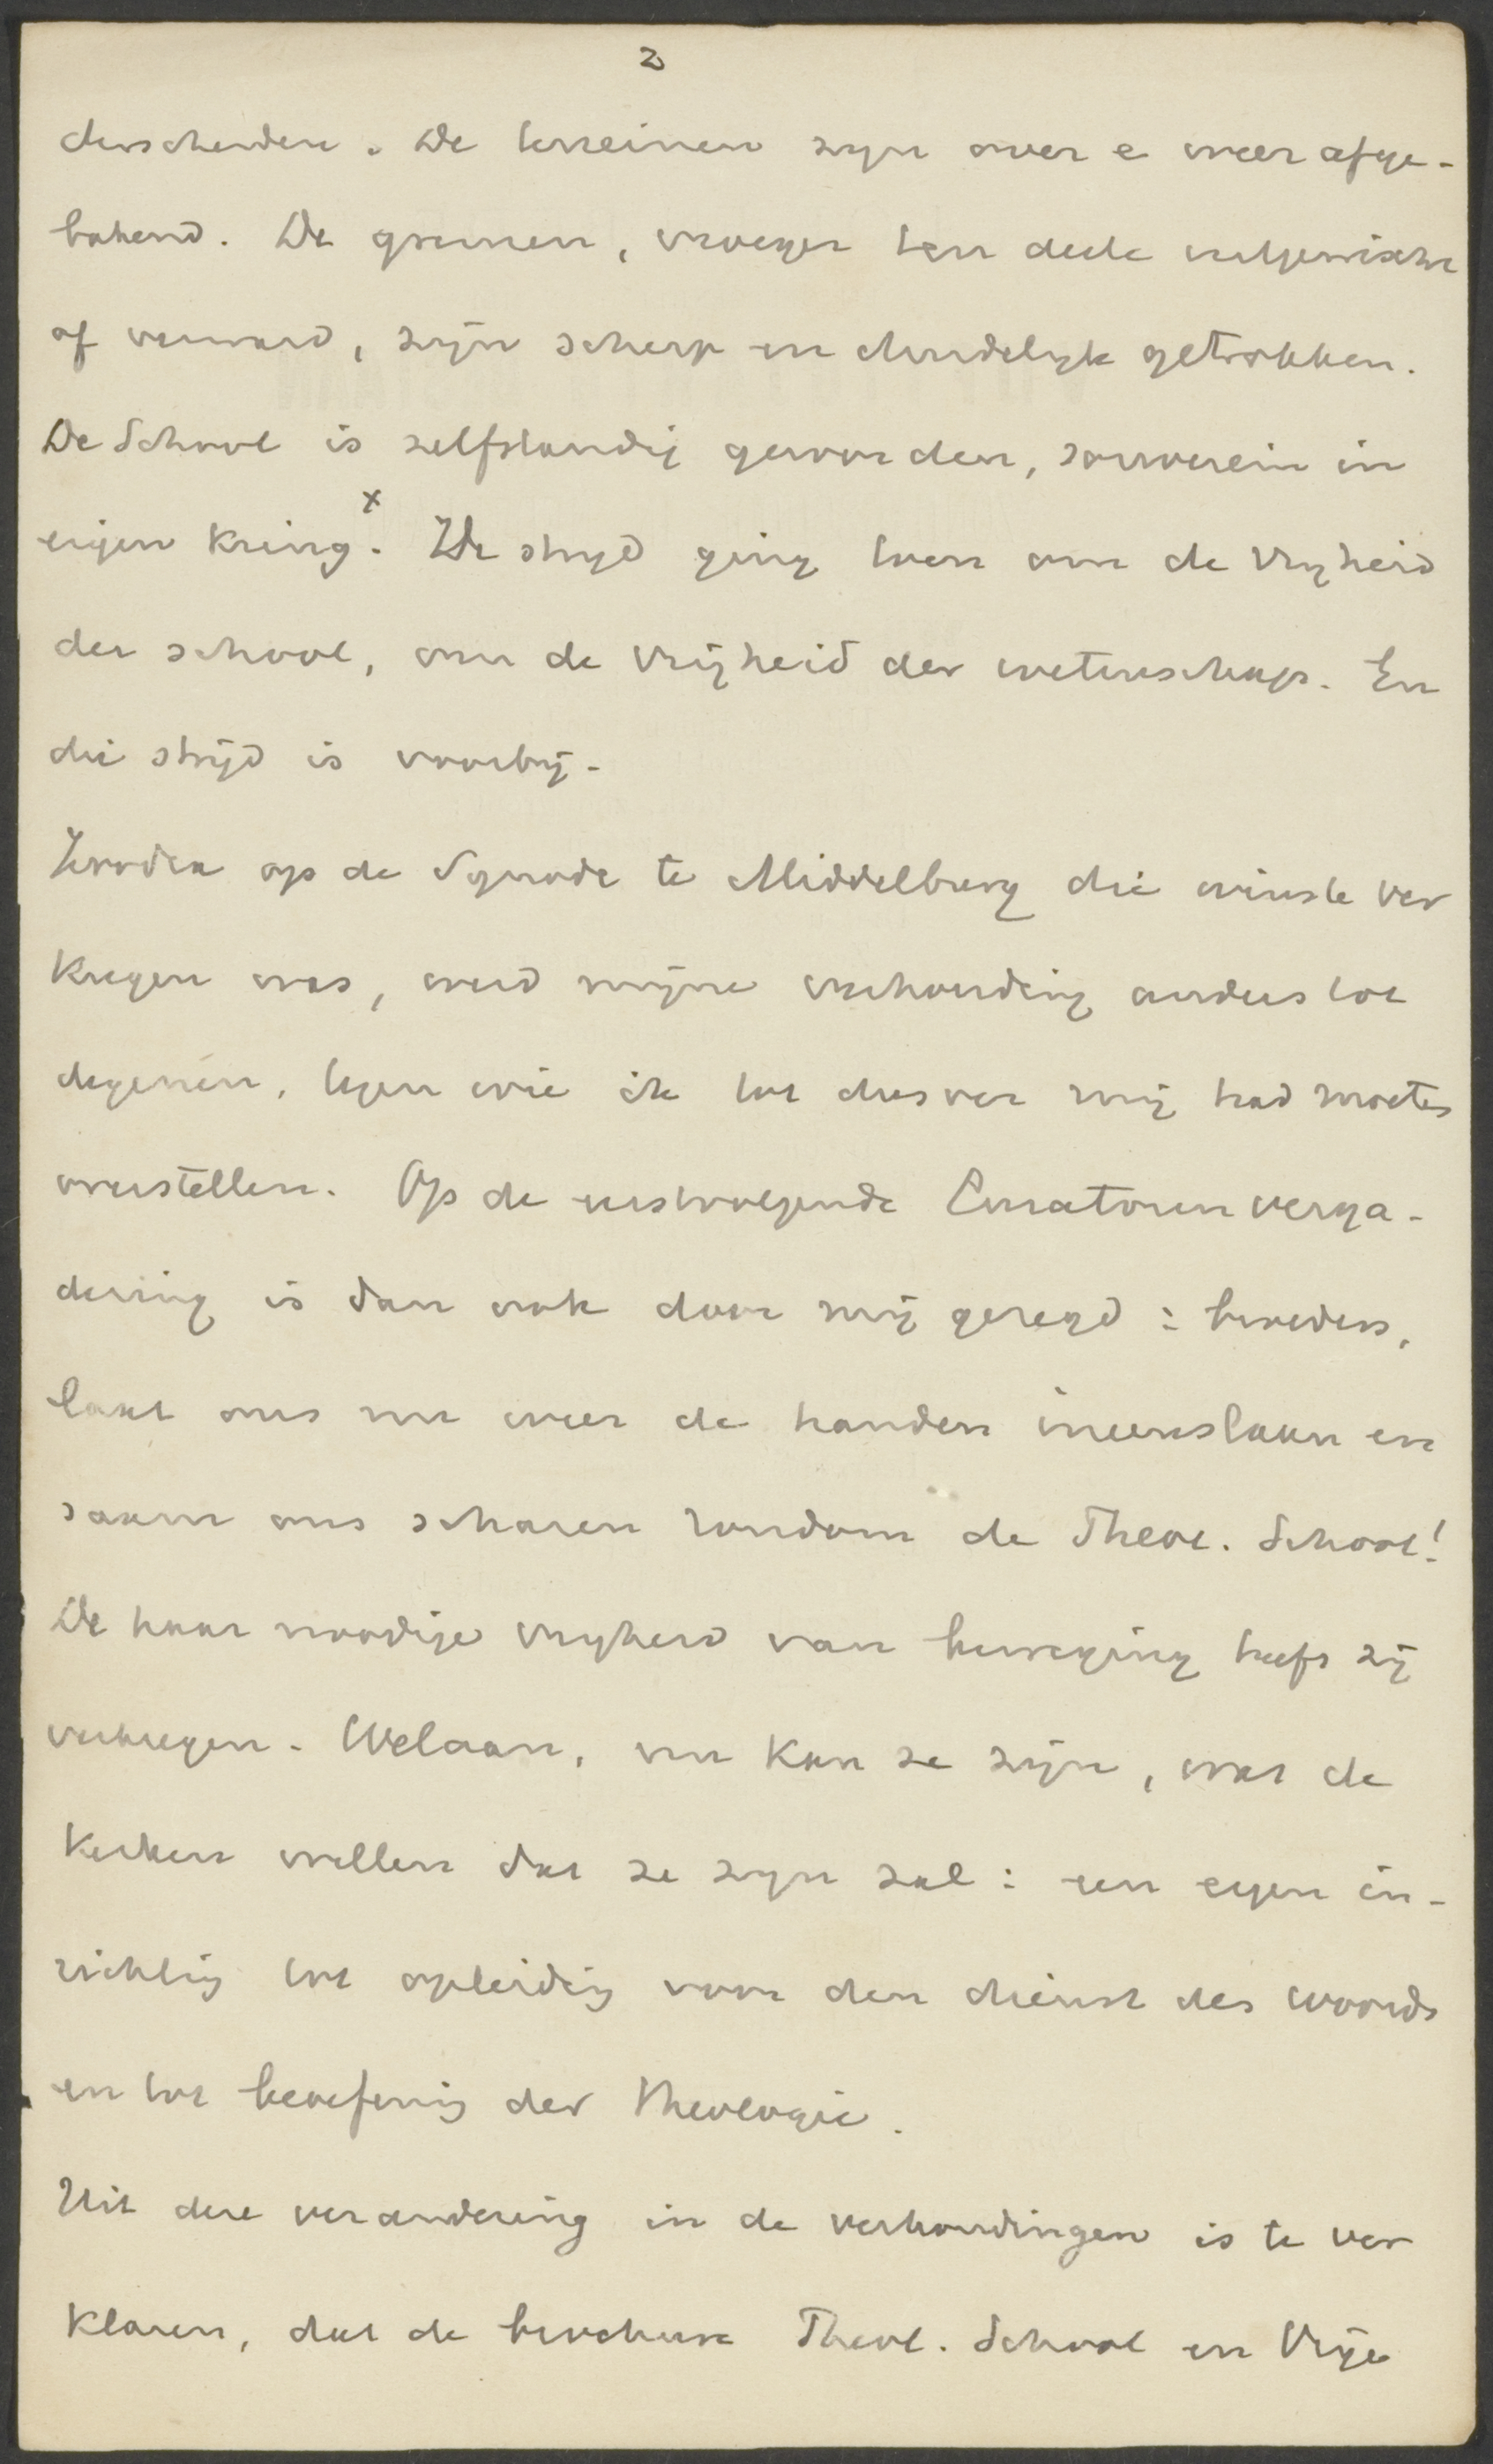 2
derscheiden. De terreinen zijn over e weer afge-
bakend. De grenzen, vroeger ten deele uitgewischt
of verward, zijn scherp en duidelijk getrokken.
De School is zelfstandig geworden, souverein in
eigen kring x. De strijd ging toen om de vrijheid
der school, om de vrijheid der wetenschap. En
die strijd is voorbij.
Zoodra op de Synode te Middelburg die winste ver
kregen was, werd mijne verhouding anders tot
degenen, tegen wie ik tot dusver mij had moeten
overstellen. Op de eerstvolgende Curatorenverga-
dering is dan ook door mij gezegd: broeders,
laat ons nu weer de handen ineenslaan en
saam ons scharen rondom de Theol. School!
De haar noodige vrijheid van beweging heeft zij
verkregen. Welaan, nu kan ze zijn, wat de
Kerken willen dat ze zijn zal: een eigen in-
richting tot opleiding voor den dienst des woords
en tot beoefening der Theologie.
Uit deze verandering in de verhoudingen is te ver
klaren, dat de brochure Theol. School en Vrije